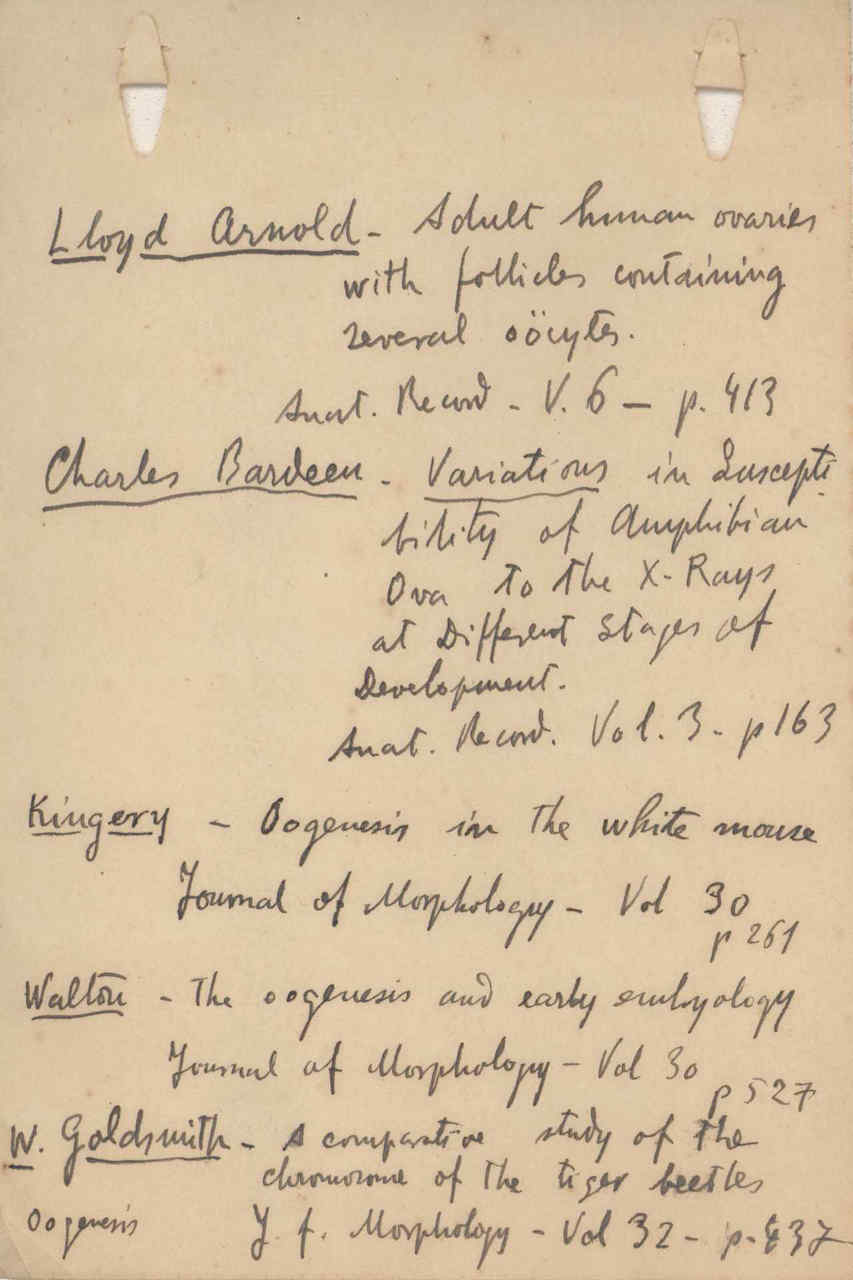 Lloyd Arnold - Adult human ovaries
with follicles containing
several oöcytes.
Anat. Record - V. 6 - p. 413
Charles Bardeen - Variations in Suscepti
bility of Amphibian
Ova to the X-Rays
at Different Stages of
Development.
Anat. Record. Vol. 3 - p 163
Kingery - Oogenesis in the white mouse
Journal of Morphology - Vol 30
p 261
Walton - The oogenesis and early embyology
Journal of Morphology - Vol 30
p 527
W. Goldsmith - A comparative study of the
chromosome of the tiger beetles
Oogenesis J. f. Morphology - Vol 32 - p. 437